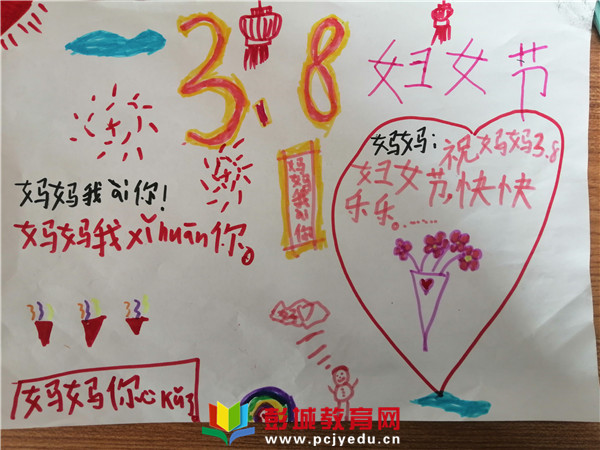 3.8
妇女节
妈妈：祝妈妈3.8
妇女节,快快
乐乐。……
妈妈我ài你
妈妈我ài你！
妈妈我xǐhuān你。
妈妈你心kǔ了
彭城教育网
www.pcjyedu.cn